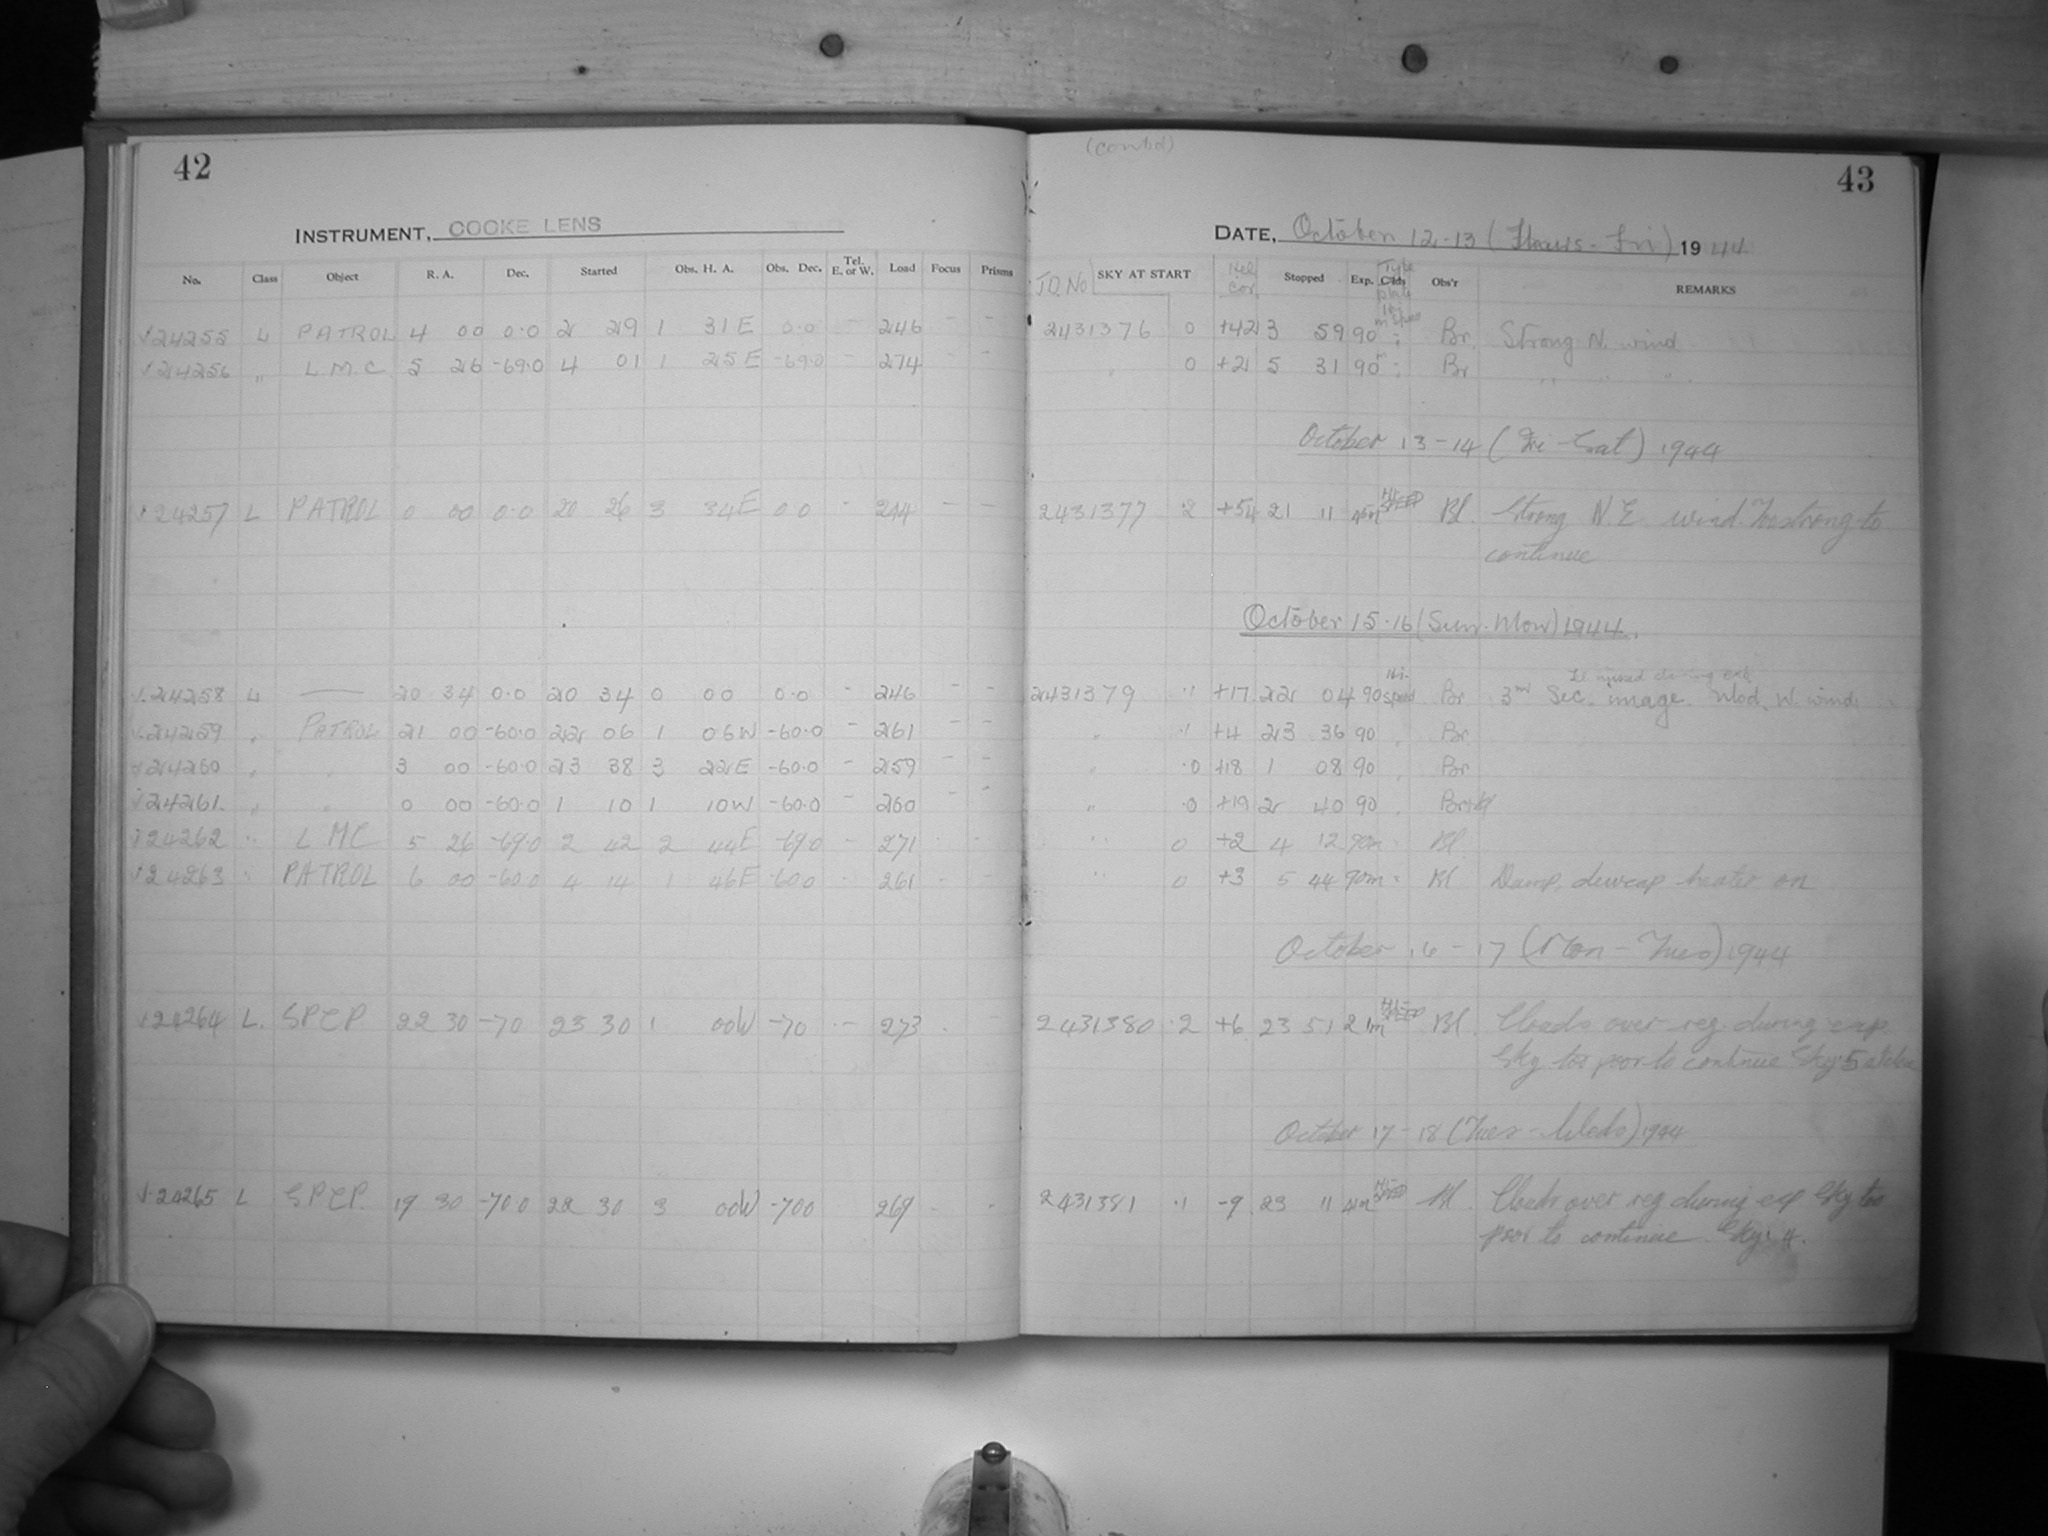 42
INSTRUMENT, COOKE LENS
No. Class Object R. A. Dec. Started Obs. H. A. Obs. Dec. Tel. E. or W. Load Focus Prisms
24255 L PATROL 4 00 0.0 2 29 1 31E 0.0 - 246 - -
24256 " L.M.C. 5 26 -69.0 4 01 1 25E -69.0 - 274 - -
24257 L PATROL 0 00 0.0 20 26 3 34E 0.0 - 244 - -
24258 L —— 20 34 0.0 20 34 0 00 0.0 - 246 - -
24259 " PATROL 21 00 -60.0 22 06 1 06W -60.0 - 261 - -
24260 " " 3 00 -60.0 23 38 3 22E -60.0 - 259 - -
24261 " " 0 00 -60.0 1 10 1 10W -60.0 - 260 - -
24262 " LMC 5 26 -69.0 2 42 2 44E -69.0 - 271 - -
24263 " PATROL 6 00 -60.0 4 14 1 46E -60.0 - 261 - -
24264 L. SPCP 22 30 -70 23 30 1 00W -70 - 273 - -
24265 L SPCP. 19 30 -70.0 22 30 3 00W -70.0 269 - -
(contd)
43
DATE, October 12-13 (Thurs-Fri) 1944
J.D. No SKY AT START Hel Cor. Stopped Exp. Type Obs'r REMARKS
2431376 0 +42 3 59 90 " Br. Strong N. wind
" 0 +21 5 31 90m " Br " " "
October 13-14 (Fri-Sat) 1944
2431377 .2 +54 21 11 45m HI-SPEED Bl. Strong N.E. wind Too strong to
continue
October 15-16 (Sun-Mon) 1944.
missed during exp
2431379 .1 +17 22 04 90 Hi-speed Br 3rd Sec. image. Mod. W. wind
" .1 +4 23 36 90 " Br
" .0 +18 1 08 90 " Br
" .0 +19 2 40 90 " Br+Bl
" 0 +2 4 12 90m " Bl
" 0 +3 5 44 90m " Bl Damp, dewcap heater on
October 16-17 (Mon-Tues) 1944
2431380 .2 +6 23 51 21m HI-SPEED Bl. Clouds over reg. during exp.
Sky too poor to continue Sky .5
October 17-18 (Tues-Weds) 1944
2431381 .1 -9 23 11 41m HI-SPEED Bl. Clouds over reg during exp Sky too
poor to continue. Sky .4.